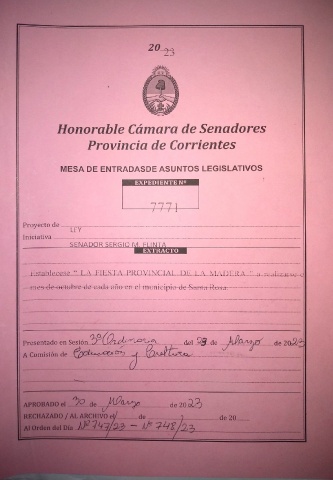 20 23
Honorable Cámara de Senadores
Provincia de Corrientes
MESA DE ENTRADASDE ASUNTOS LEGISLATIVOS
EXPEDIENTE Nº
7771
Proyecto de LEY
Iniciativa SENADOR SERGIO M. FLINTA
EXTRACTO
Establecese " LA FIESTA PROVINCIAL DE LA MADERA " a realizarse
mes de octubre de cada año en el municipio de Santa Rosa.
Presentado en Sesión 3º Ordinaria del 23 de Marzo de 2023
A Comisión de Educación y Cultura
APROBADO el 30 de Marzo de 2023
RECHAZADO / AL ARCHIVO el de de 20
Al Orden del Día Nº 747/23 - Nº 748/23